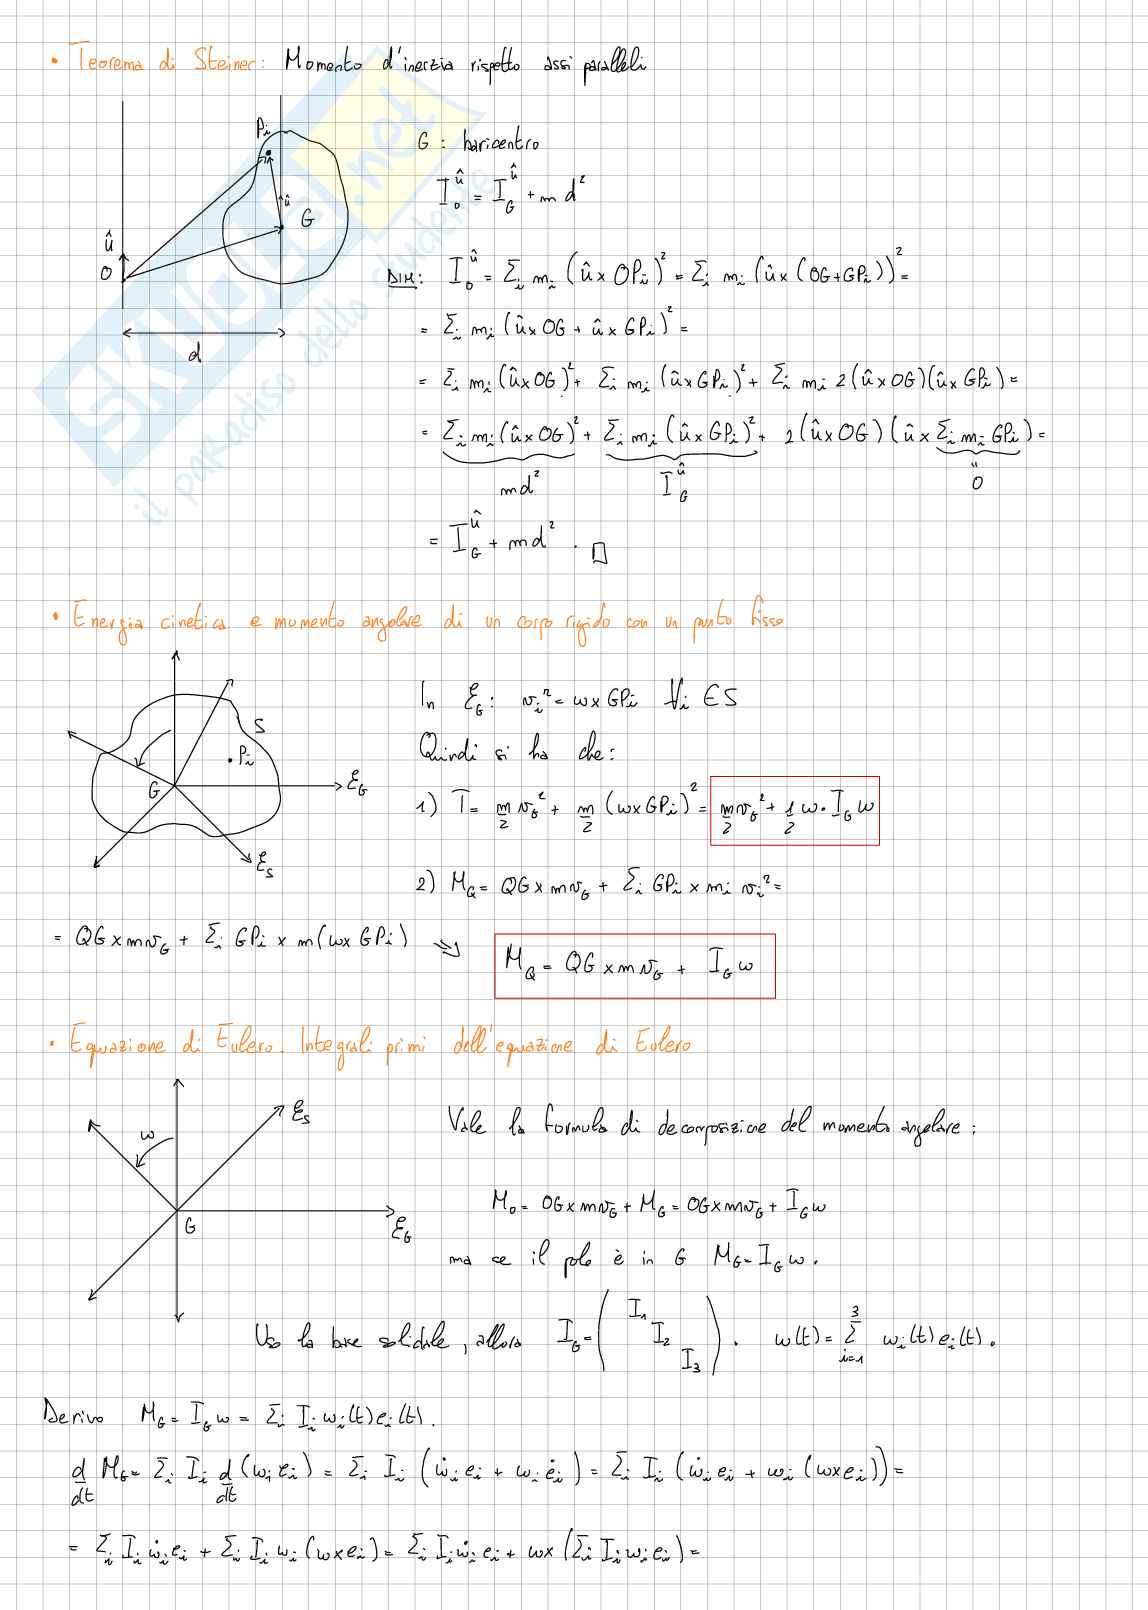 • Teorema di Steiner: Momento d'inerzia rispetto assi paralleli
Pi
û
G
û
O
d
G : baricentro
I₀^û = I_G^û + m d²
DIM: I₀^û = Σi mi (û × OPi)² = Σi mi (û × (OG+GPi))² =
= Σi mi (û × OG + û × GPi)² =
= Σi mi (û × OG)² + Σi mi (û × GPi)² + Σi mi 2(û × OG)(û × GPi) =
= Σi mi (û × OG)² + Σi mi (û × GPi)² + 2(û × OG)(û × Σi mi GPi) =
md² I_G^û 0
= I_G^û + md² . □
• Energia cinetica e momento angolare di un corpo rigido con un punto fisso
S
Pi
G
ξ_G
ξ_S
In ξ_G: vi^r = w × GPi ∀i ∈ S
Quindi si ha che:
1) T = m/2 v_G² + m/2 (w × GPi)² = m/2 v_G² + 1/2 w · I_G w
2) M_Q = QG × m v_G + Σi GPi × mi vi^r =
= QG × m v_G + Σi GPi × m(w × GPi) ⇒ M_Q = QG × m v_G + I_G w
• Equazione di Eulero. Integrali primi dell'equazione di Eulero
w
ξ_S
G
ξ_G
Vale la formula di decomposizione del momento angolare:
M₀ = OG × m v_G + M_G = OG × m v_G + I_G w
ma se il polo è in G M_G = I_G w.
Uso la base solidale, allora I_G = ( I₁ I₂ I₃ ) . w(t) = Σ_{i=1}^{3} wi(t) ei(t).
Derivo M_G = I_G w = Σi Ii wi(t) ei(t).
d/dt M_G = Σi Ii d/dt (wi ei) = Σi Ii (ẇi ei + wi ėi) = Σi Ii (ẇi ei + wi (w × ei)) =
= Σi Ii ẇi ei + Σi Ii wi (w × ei) = Σi Ii ẇi ei + w × (Σi Ii wi ei) =
SKUOLA.net
il paradiso dello studente